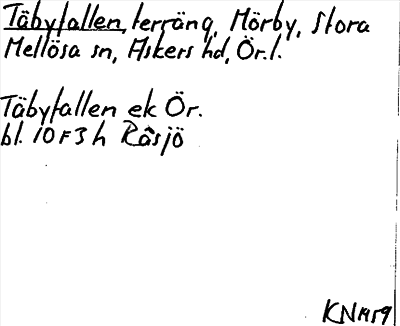 Täbyfallen, terräng, Mörby, Stora
Mellösa sn, Askers hd, Ör. l.
Täbyfallen ek Ör.
bl. 10F3h Råsjö